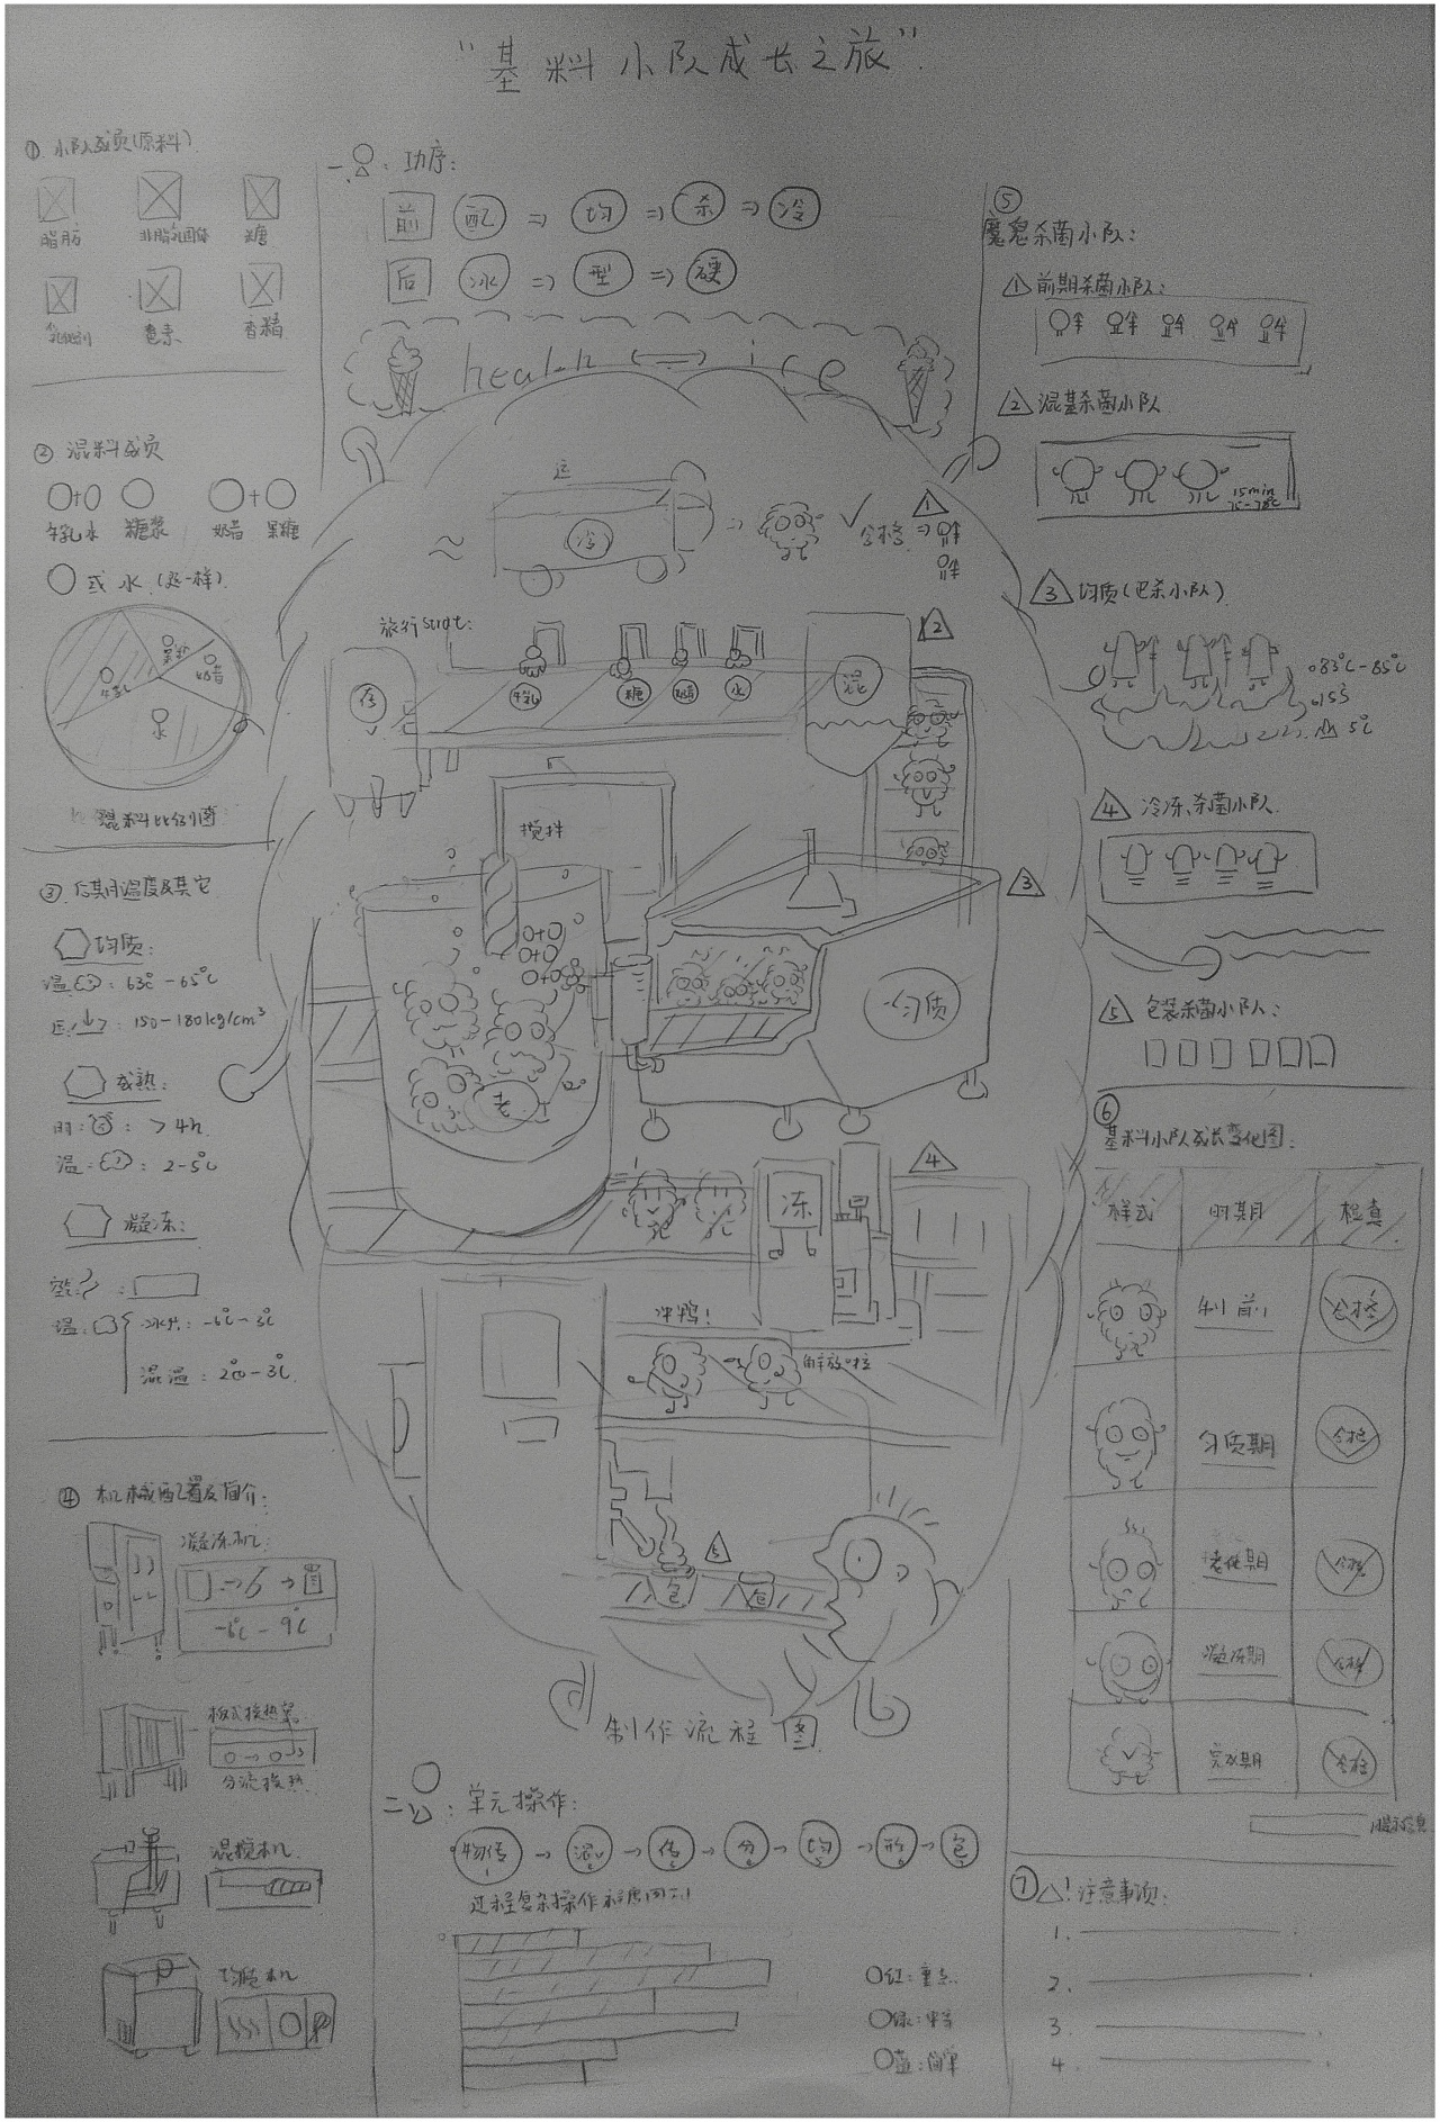 "基料小队成长之旅"
① 小队成员(原料)
脂肪 非脂乳固体 糖
乳化剂 色素 香精
② 混料成员
牛乳水 糖浆 奶昔 果糖
或 水 (这一样)
果糖
奶昔
牛乳
水
混料比例图
③ 后期温度及其它
均质:
温: 63℃-65℃
压: 150-180kg/cm³
成熟:
时: >4h
温: 2-5℃
凝冻:
温:
④ 机械配置及简介:
凝冻机:
-6℃-9℃
板式换热器
分流换热
混搅机
均质机
一、功序:
前 配 => 均 => 杀 => 冷
后 冰 => 型 => 硬
health ice
运
冷
合格
1
旅行start:
存
牛乳 糖 奶昔 水
混
2
搅拌
3
匀质
老
4
冻
冲鸭!
解放啦
5
包 包
制作流程图
二、单元操作:
物传 → 混 → 传 → 分 → 均 → 形 → 包
1 2 3 4 5 6 7
过程复杂操作程度
红:重点
绿:中等
蓝:简单
⑤
魔鬼杀菌小队:
1 前期杀菌小队:
2 混基杀菌小队
15min
75-78℃
3 均质(巴杀小队)
83℃-85℃
15S
5℃
4 冷冻杀菌小队
5 包装杀菌小队:
⑥
基料小队成长变化图:
样式 时期 检查
制前 合格
匀质期 合格
老化期 合格
凝冻期 合格
完成期 合格
⑦ ! 注意事项:
1.
2.
3.
4.